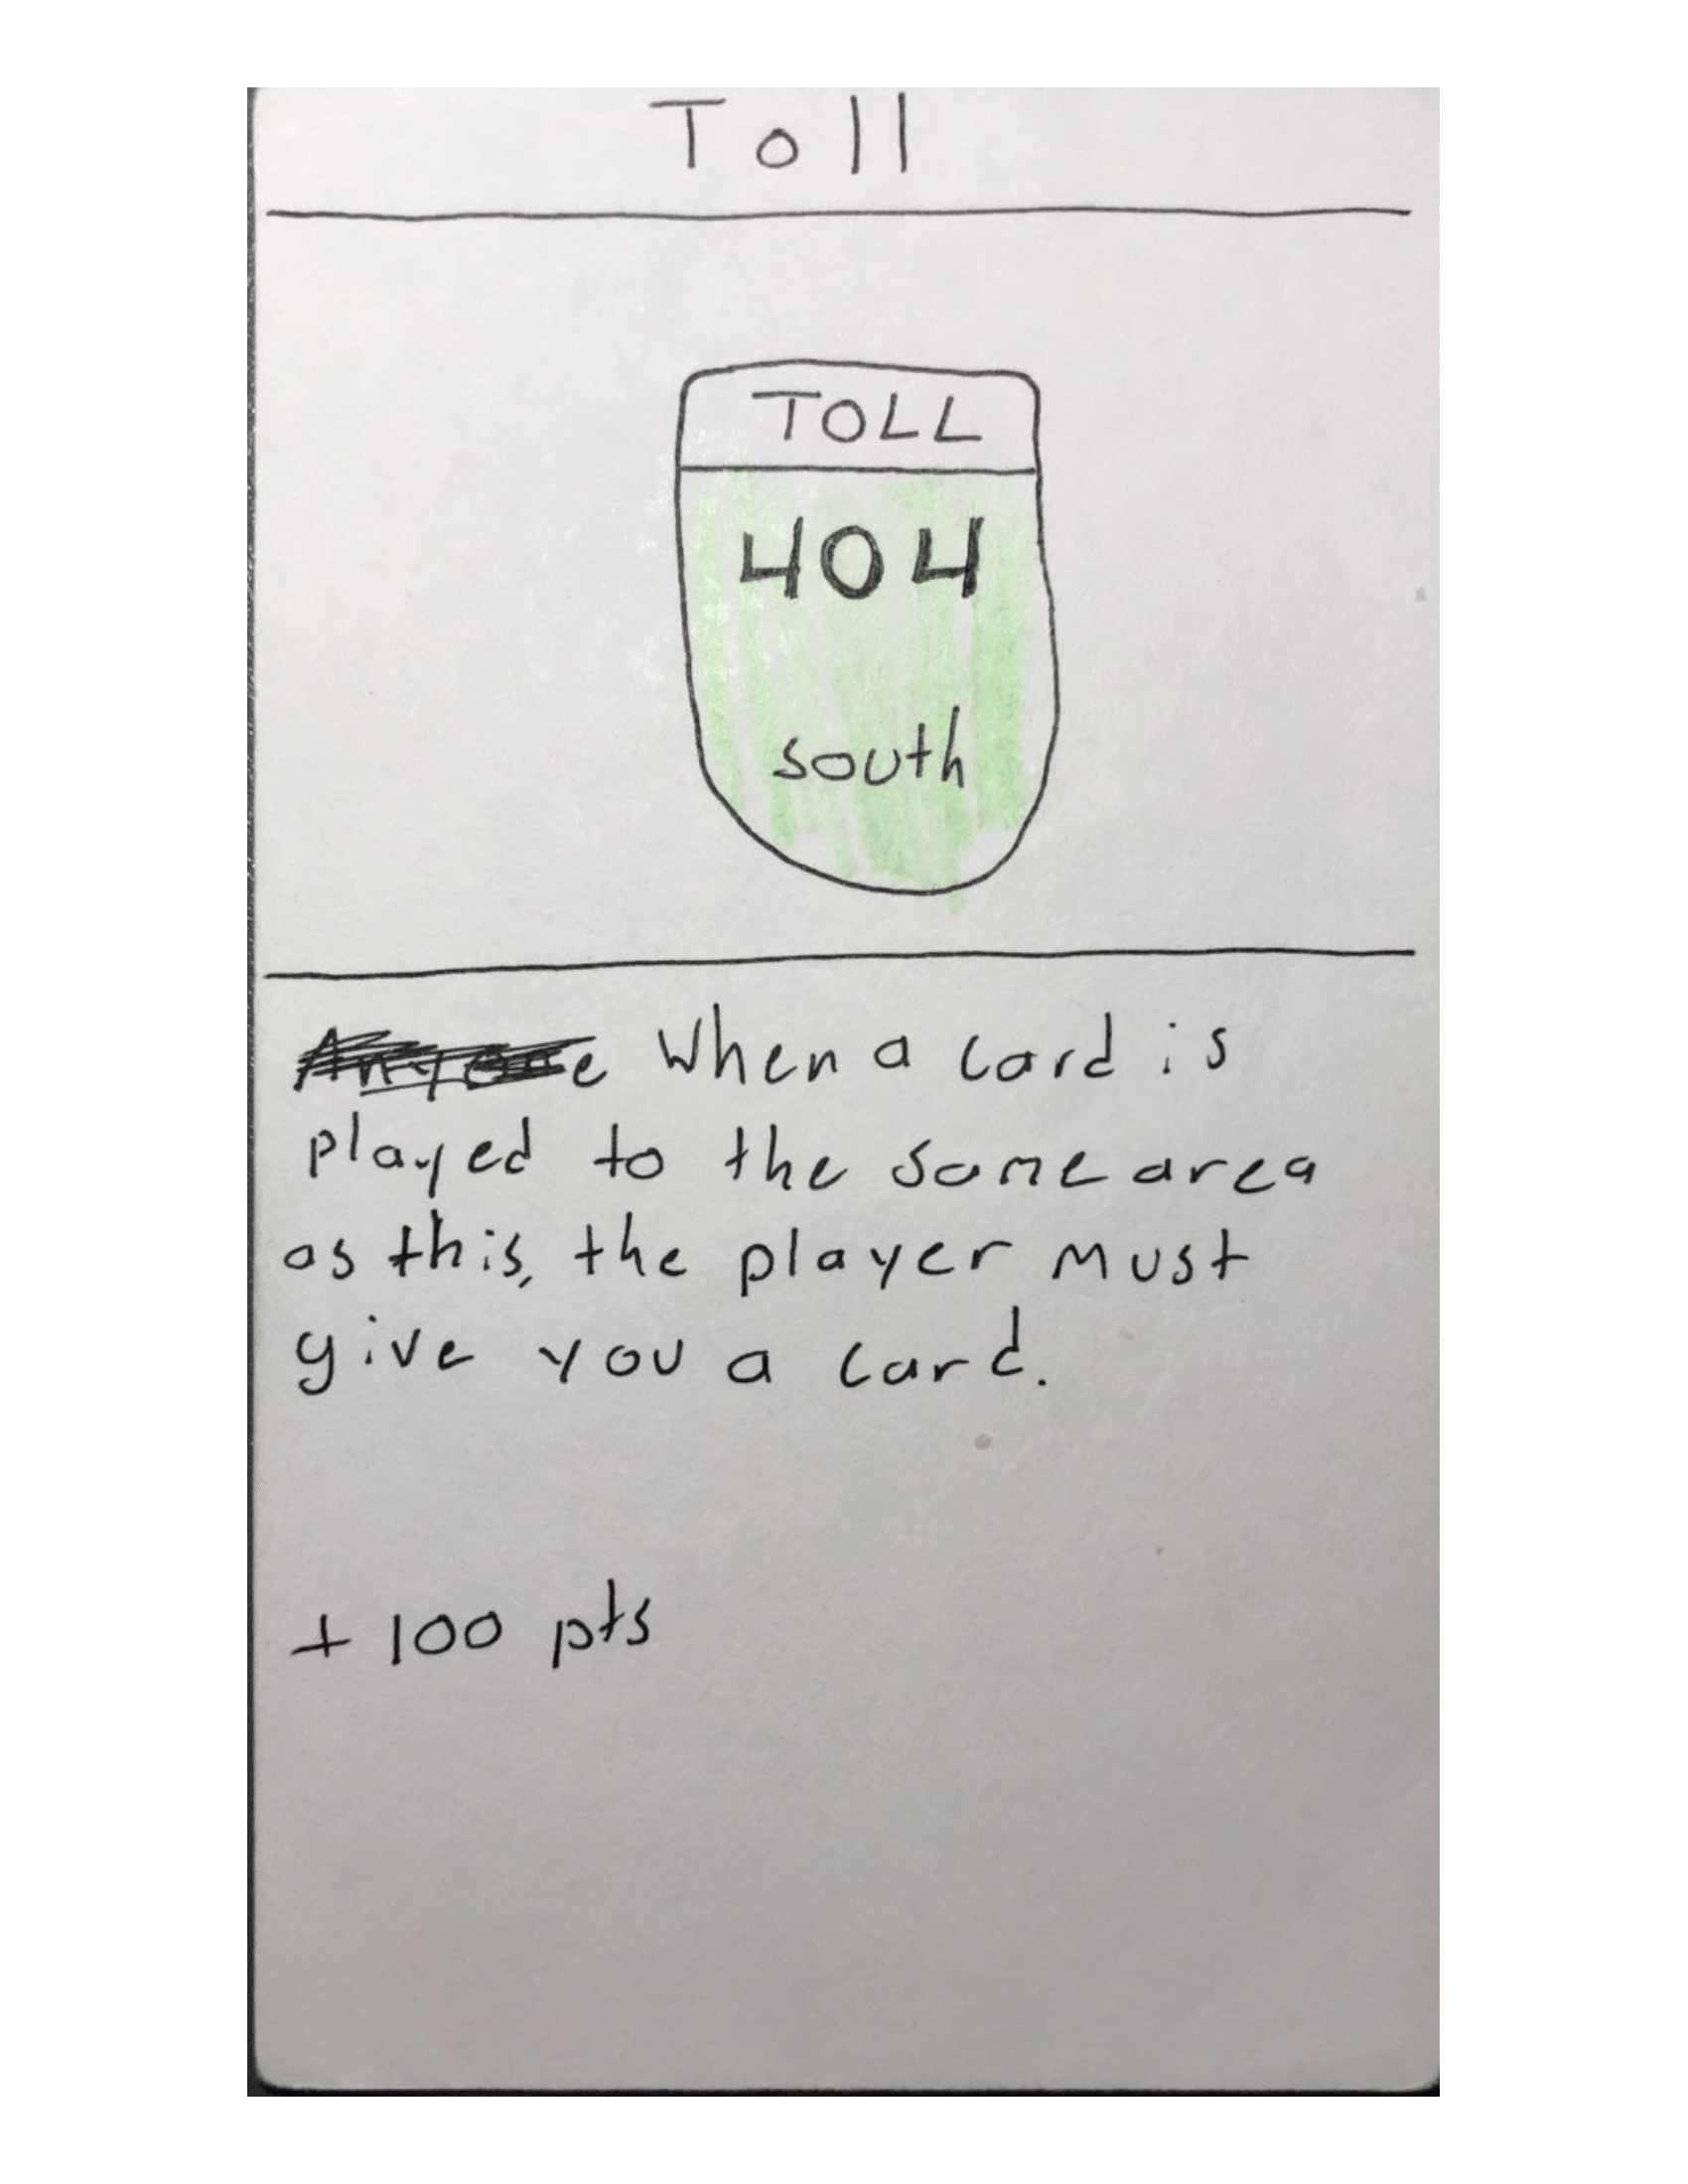 Toll
TOLL
404
south
When a card is
played to the same area
as this, the player must
give you a card.
+ 100 pts